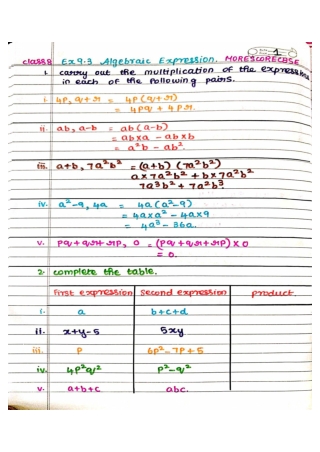 1
class 8 Ex 9.3 Algebraic Expression. MORESCORECBSE
1. carry out the multiplication of the expressions
in each of the following pairs.
i. 4p, q+r = 4p(q+r)
= 4pq + 4pr.
ii. ab, a-b = ab(a-b)
= abxa - abxb
= a²b - ab².
iii. a+b, 7a²b² = (a+b) (7a²b²)
a x 7a²b² + b x 7a²b²
7a³b² + 7a²b³
iv. a²-9, 4a = 4a(a²-9)
= 4axa² - 4ax9
= 4a³ - 36a.
v. pq+qr+rp, 0 = (pq+qr+rp) x 0
= 0.
2. complete the table.
First expression Second expression product
i. a b+c+d
ii. x+y-5 5xy
iii. p 6p²-7p+5
iv. 4p²q² p²-q²
v. a+b+c abc.